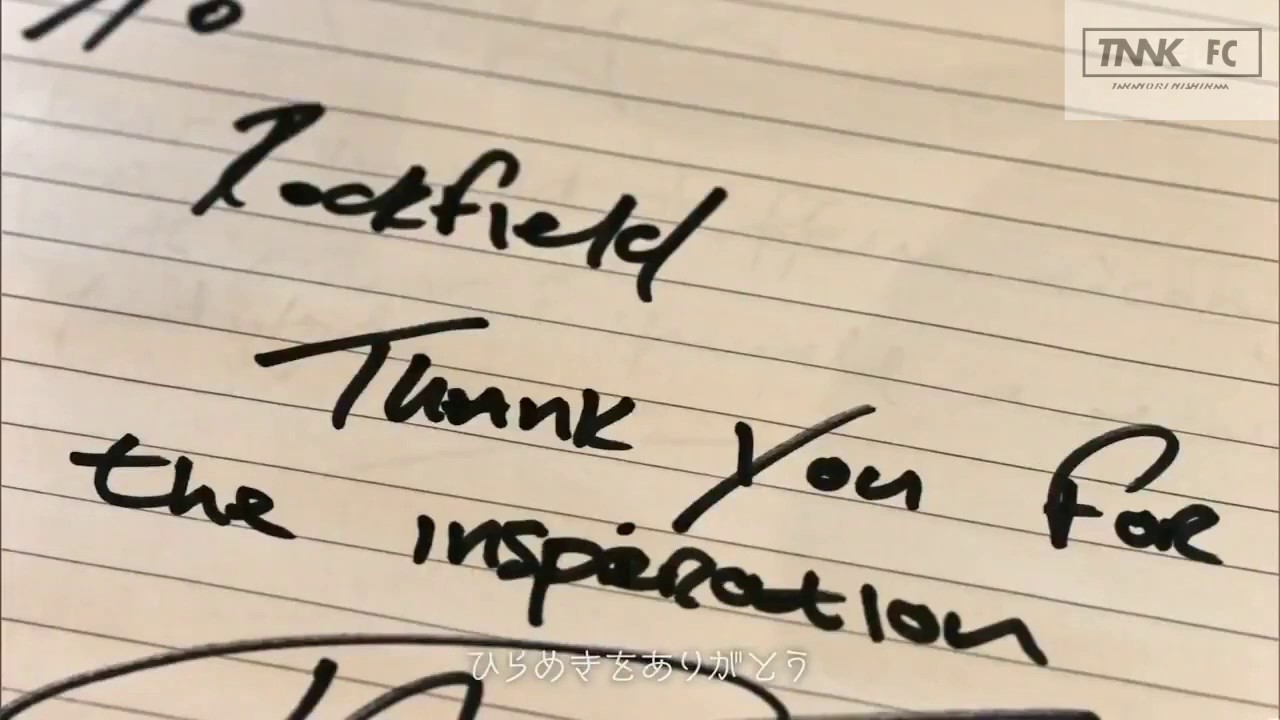 To
TNNK FC
TAKANORI NISHIKAWA
Rockfield
Thank you for
the inspiration
ひらめきをありがとう